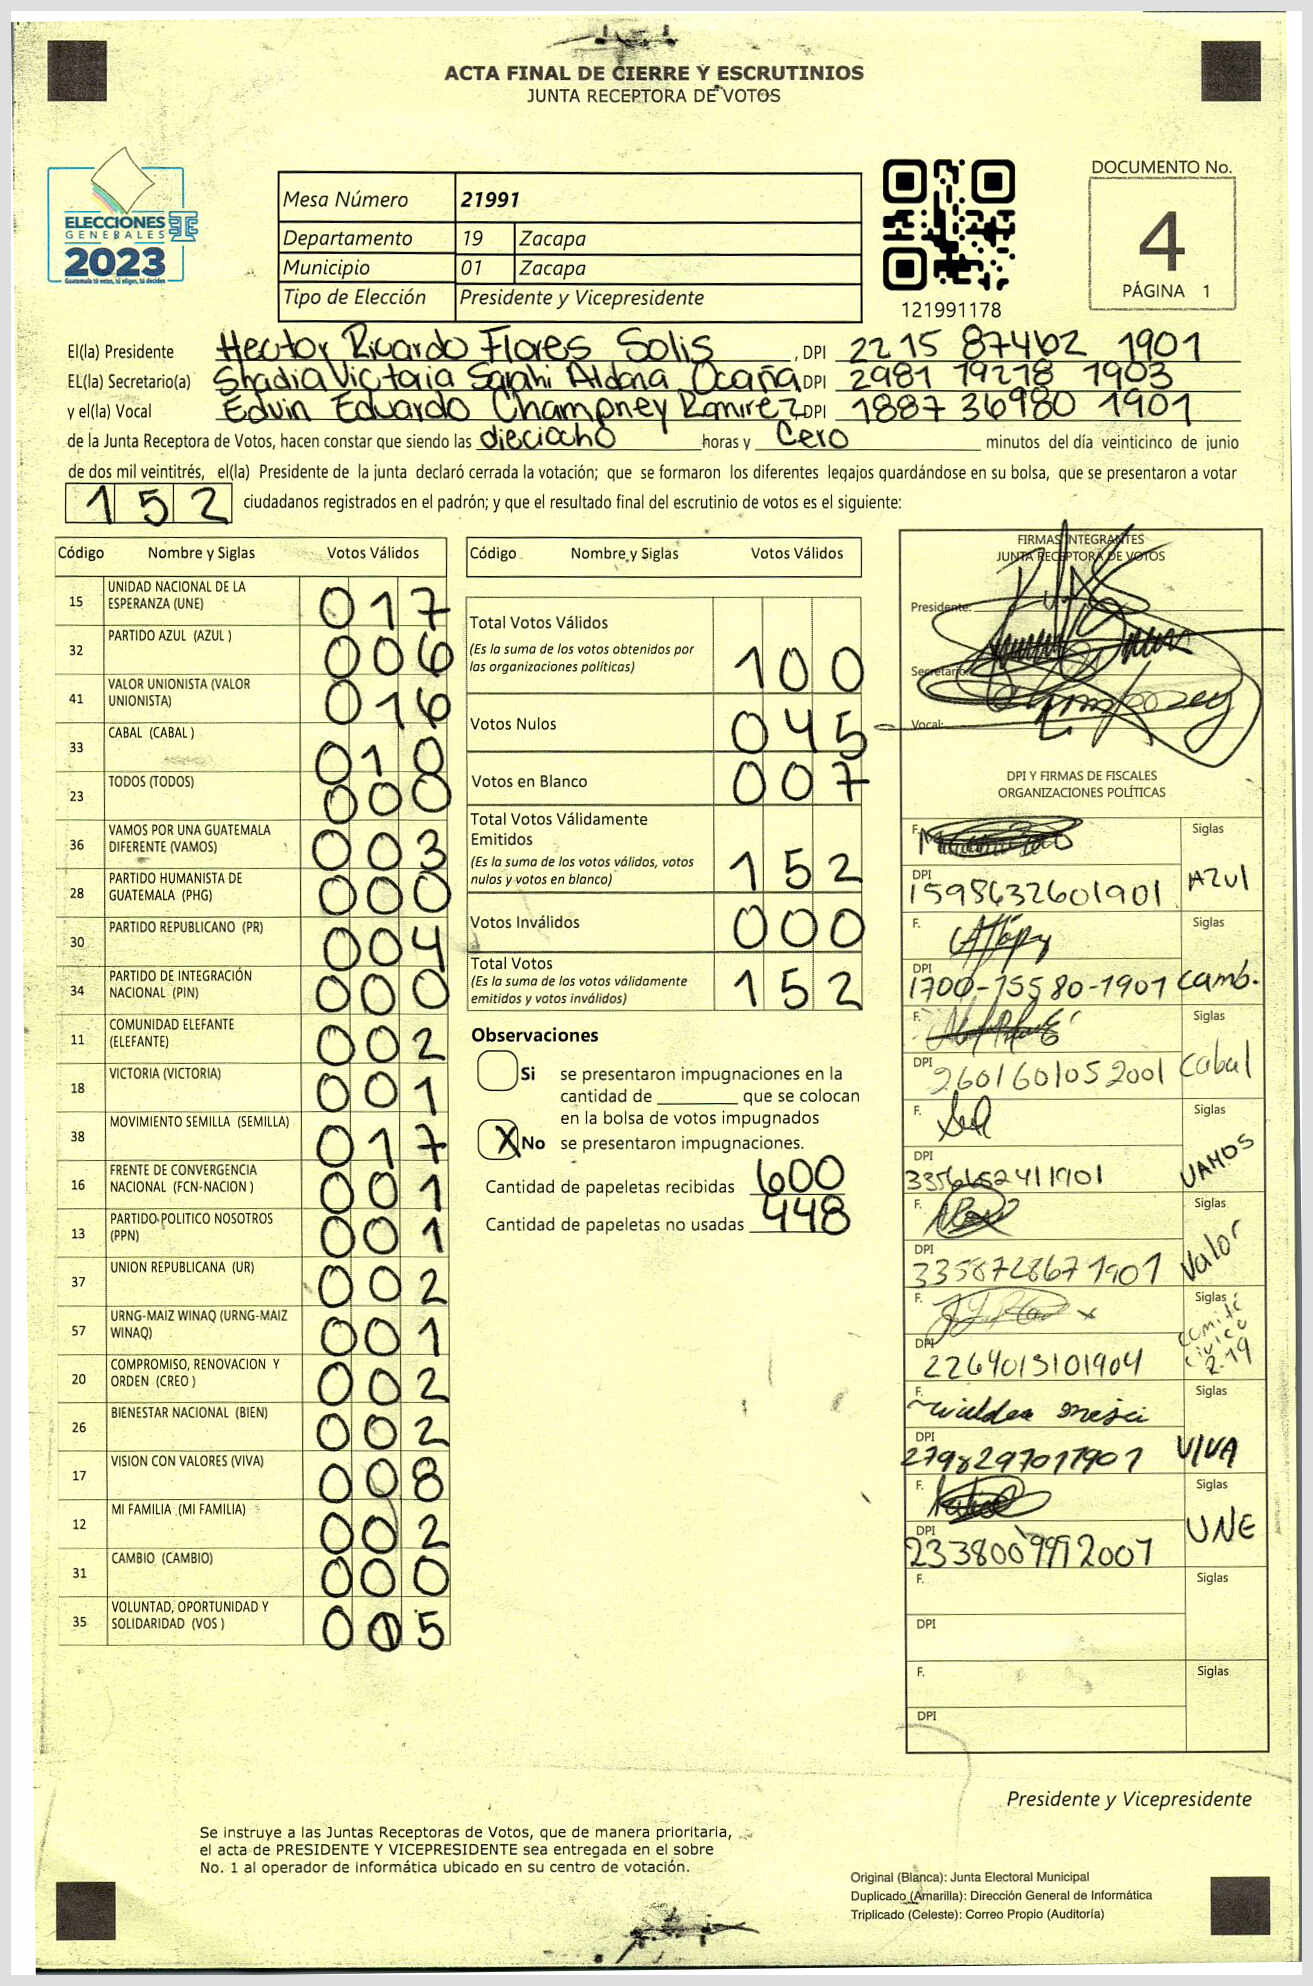 ACTA FINAL DE CIERRE Y ESCRUTINIOS
JUNTA RECEPTORA DE VOTOS
ELECCIONES
GENERALES
2023
Guatemala tú votas, tú eliges, tú decides
Mesa Número 21991
Departamento 19 Zacapa
Municipio 01 Zacapa
Tipo de Elección Presidente y Vicepresidente
121991178
DOCUMENTO No.
4
PÁGINA 1
El(la) Presidente Hector Ricardo Flores Solis, DPI 2215 87462 1901
EL(la) Secretario(a) Shadia Victoria Sarahi Aldana Ocaña, DPI 2981 19218 1903
y el(la) Vocal Edvin Eduardo Champney Ramirez, DPI 1887 36980 1901
de la Junta Receptora de Votos, hacen constar que siendo las dieciocho horas y Cero minutos del día veinticinco de junio
de dos mil veintitrés, el(la) Presidente de la junta declaró cerrada la votación; que se formaron los diferentes legajos quardándose en su bolsa, que se presentaron a votar
152 ciudadanos registrados en el padrón; y que el resultado final del escrutinio de votos es el siguiente:
Código Nombre y Siglas Votos Válidos
15 UNIDAD NACIONAL DE LA ESPERANZA (UNE) 017
32 PARTIDO AZUL (AZUL ) 006
41 VALOR UNIONISTA (VALOR UNIONISTA) 016
33 CABAL (CABAL ) 010
23 TODOS (TODOS) 000
36 VAMOS POR UNA GUATEMALA DIFERENTE (VAMOS) 003
28 PARTIDO HUMANISTA DE GUATEMALA (PHG) 000
30 PARTIDO REPUBLICANO (PR) 004
34 PARTIDO DE INTEGRACIÓN NACIONAL (PIN) 000
11 COMUNIDAD ELEFANTE (ELEFANTE) 002
18 VICTORIA (VICTORIA) 001
38 MOVIMIENTO SEMILLA (SEMILLA) 017
16 FRENTE DE CONVERGENCIA NACIONAL (FCN-NACION ) 001
13 PARTIDO POLITICO NOSOTROS (PPN) 001
37 UNION REPUBLICANA (UR) 002
57 URNG-MAIZ WINAQ (URNG-MAIZ WINAQ) 001
20 COMPROMISO, RENOVACION Y ORDEN (CREO ) 002
26 BIENESTAR NACIONAL (BIEN) 002
17 VISION CON VALORES (VIVA) 008
12 MI FAMILIA (MI FAMILIA) 002
31 CAMBIO (CAMBIO) 000
35 VOLUNTAD, OPORTUNIDAD Y SOLIDARIDAD (VOS ) 005
Código Nombre y Siglas Votos Válidos
Total Votos Válidos 100
(Es la suma de los votos obtenidos por
las organizaciones políticas)
Votos Nulos 045
Votos en Blanco 007
Total Votos Válidamente
Emitidos 152
(Es la suma de los votos válidos, votos
nulos y votos en blanco)
Votos Inválidos 000
Total Votos 152
(Es la suma de los votos válidamente
emitidos y votos inválidos)
Observaciones
Si se presentaron impugnaciones en la
cantidad de ________ que se colocan
en la bolsa de votos impugnados
X No se presentaron impugnaciones.
Cantidad de papeletas recibidas 600
Cantidad de papeletas no usadas 448
FIRMAS INTEGRANTES
JUNTA RECEPTORA DE VOTOS
Presidente:
Secretario:
Vocal:
DPI Y FIRMAS DE FISCALES
ORGANIZACIONES POLÍTICAS
F. Siglas
DPI 1598632601901 AZUl
F. Siglas
DPI 1700-15580-1901 Camb.
F. Siglas
DPI 2601601052001 Cabal
F. Siglas
DPI 3356652411901 VAMOS
F. Siglas
DPI 3358728671901 Valor
F. Siglas
DPI 2264013101904 comité civico 2-19
F. Siglas
DPI 2798297011901 VIVA
F. Siglas
DPI 2338009992001 UNE
F. Siglas
DPI
F. Siglas
DPI
Presidente y Vicepresidente
Se instruye a las Juntas Receptoras de Votos, que de manera prioritaria,
el acta de PRESIDENTE Y VICEPRESIDENTE sea entregada en el sobre
No. 1 al operador de informática ubicado en su centro de votación.
Original (Blanca): Junta Electoral Municipal
Duplicado (Amarilla): Dirección General de Informática
Triplicado (Celeste): Correo Propio (Auditoría)